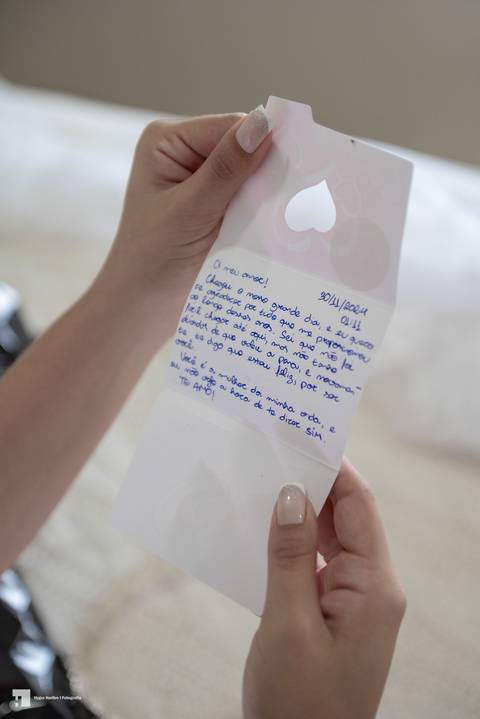 Oi meu amor!
30/11/2024
01:11
Chegou o nosso grande dia, e eu quero
te agradecer por tudo que me proporcionou
ao longo desses anos. Sei que não foi
fácil chegar até aqui, mas não tenho
dúvidas de que valeu a pena, e novamen-
te te digo que estou feliz, por ser
você.
Você é a mulher da minha vida, e
eu não vejo a hora de te dizer SIM.
TE AMO!
Fotografia